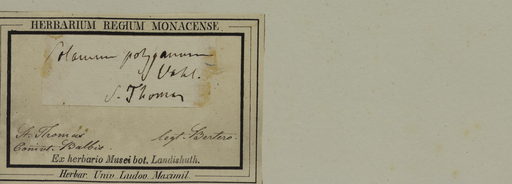 HERBARIUM REGIUM MONACENSE
Solanum polyganum
Vahl.
S. Thomas
St. Thomas
Comm. Balbis legt. Bertero.
Ex herbario Musei bot. Landishuth.
Herbar. Univ. Ludov. Maximil.